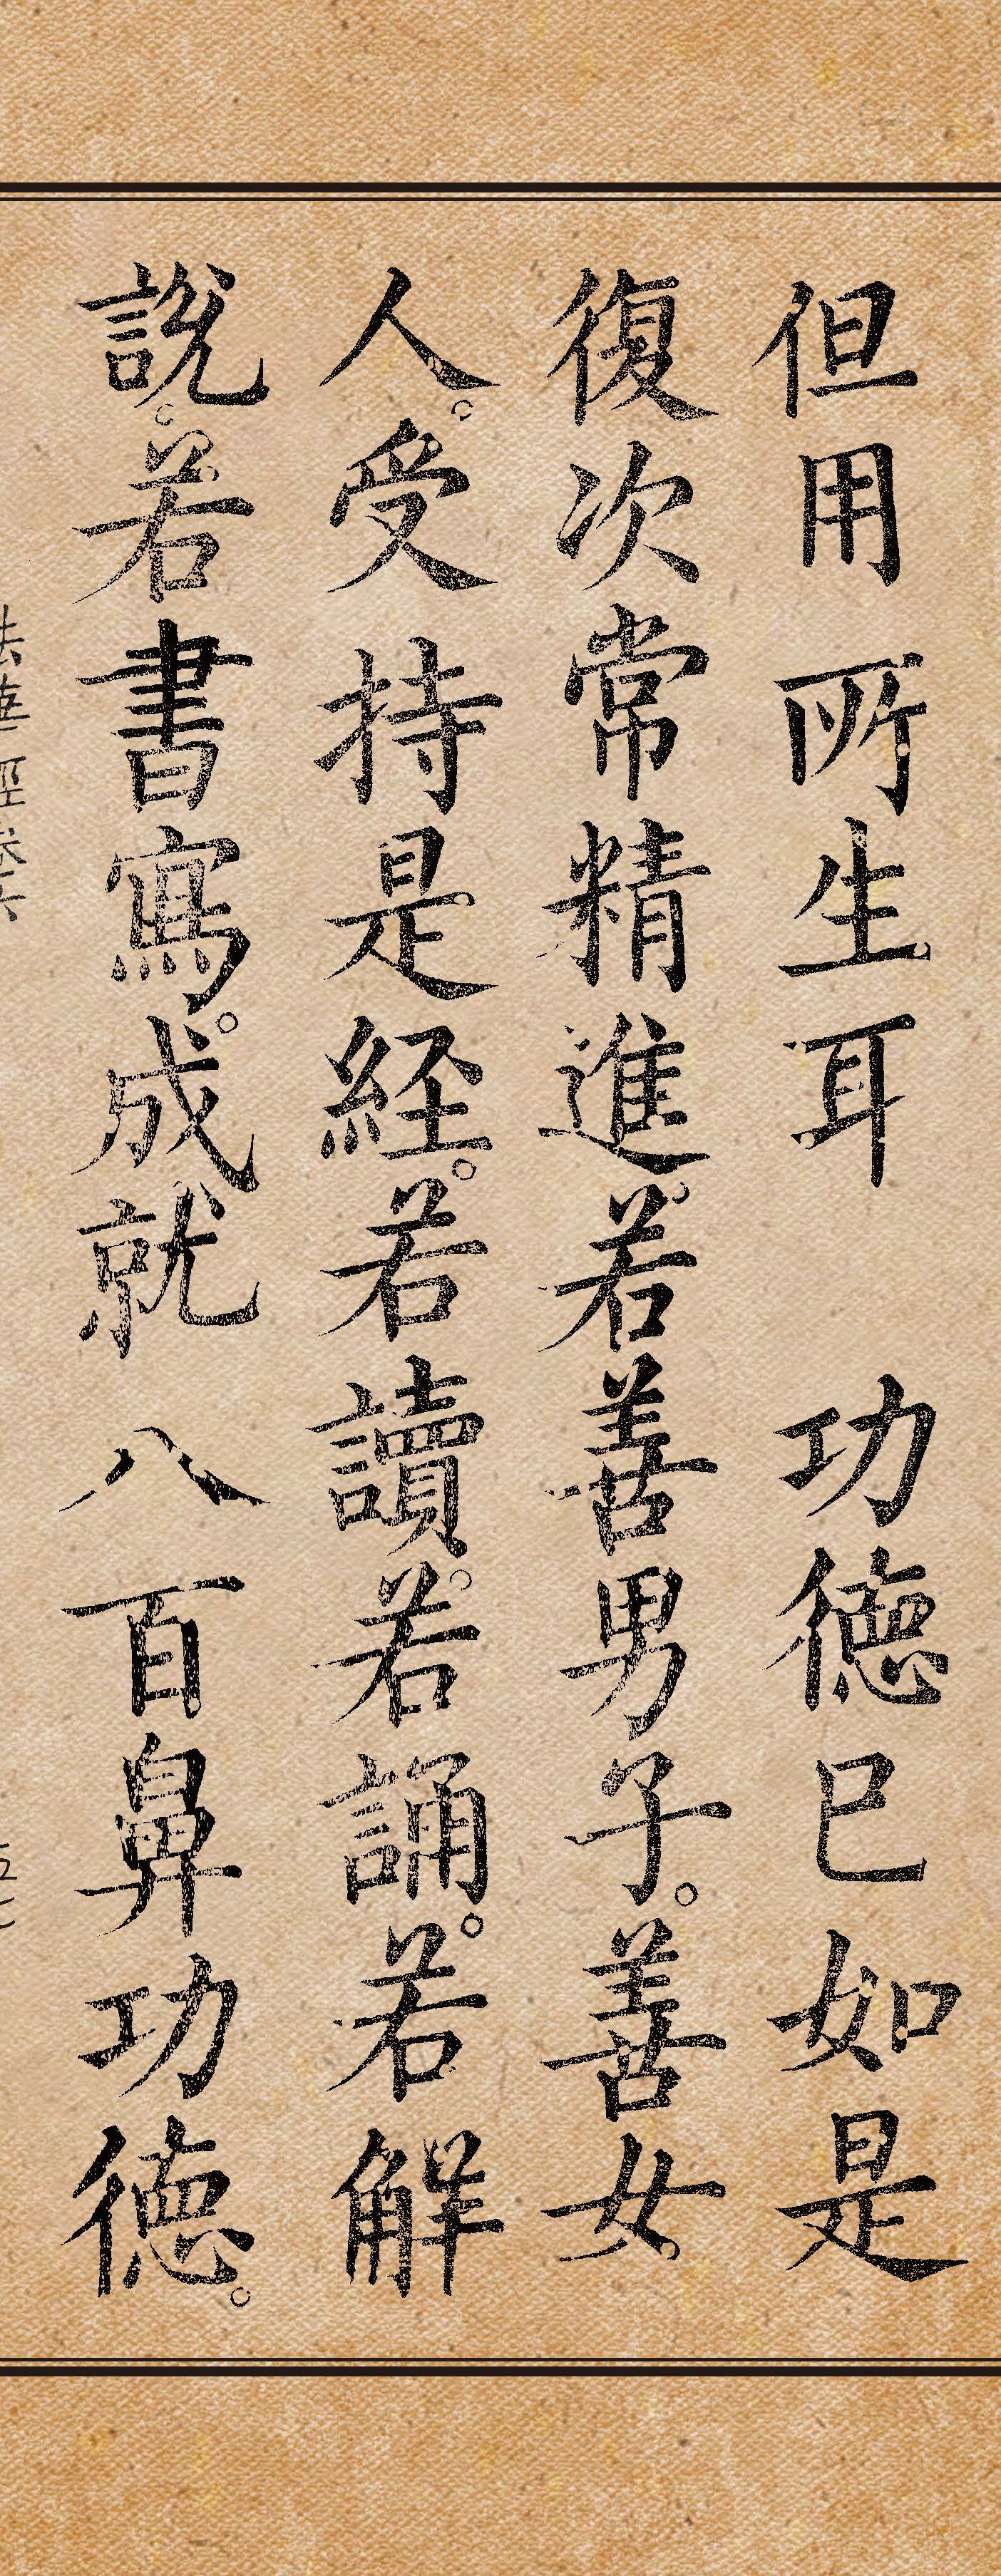 但用所生耳　功德已如是
復次常精進。若善男子。善女
人。受持是経。若讀。若誦。若解
說。若書寫。成就八百鼻功德。